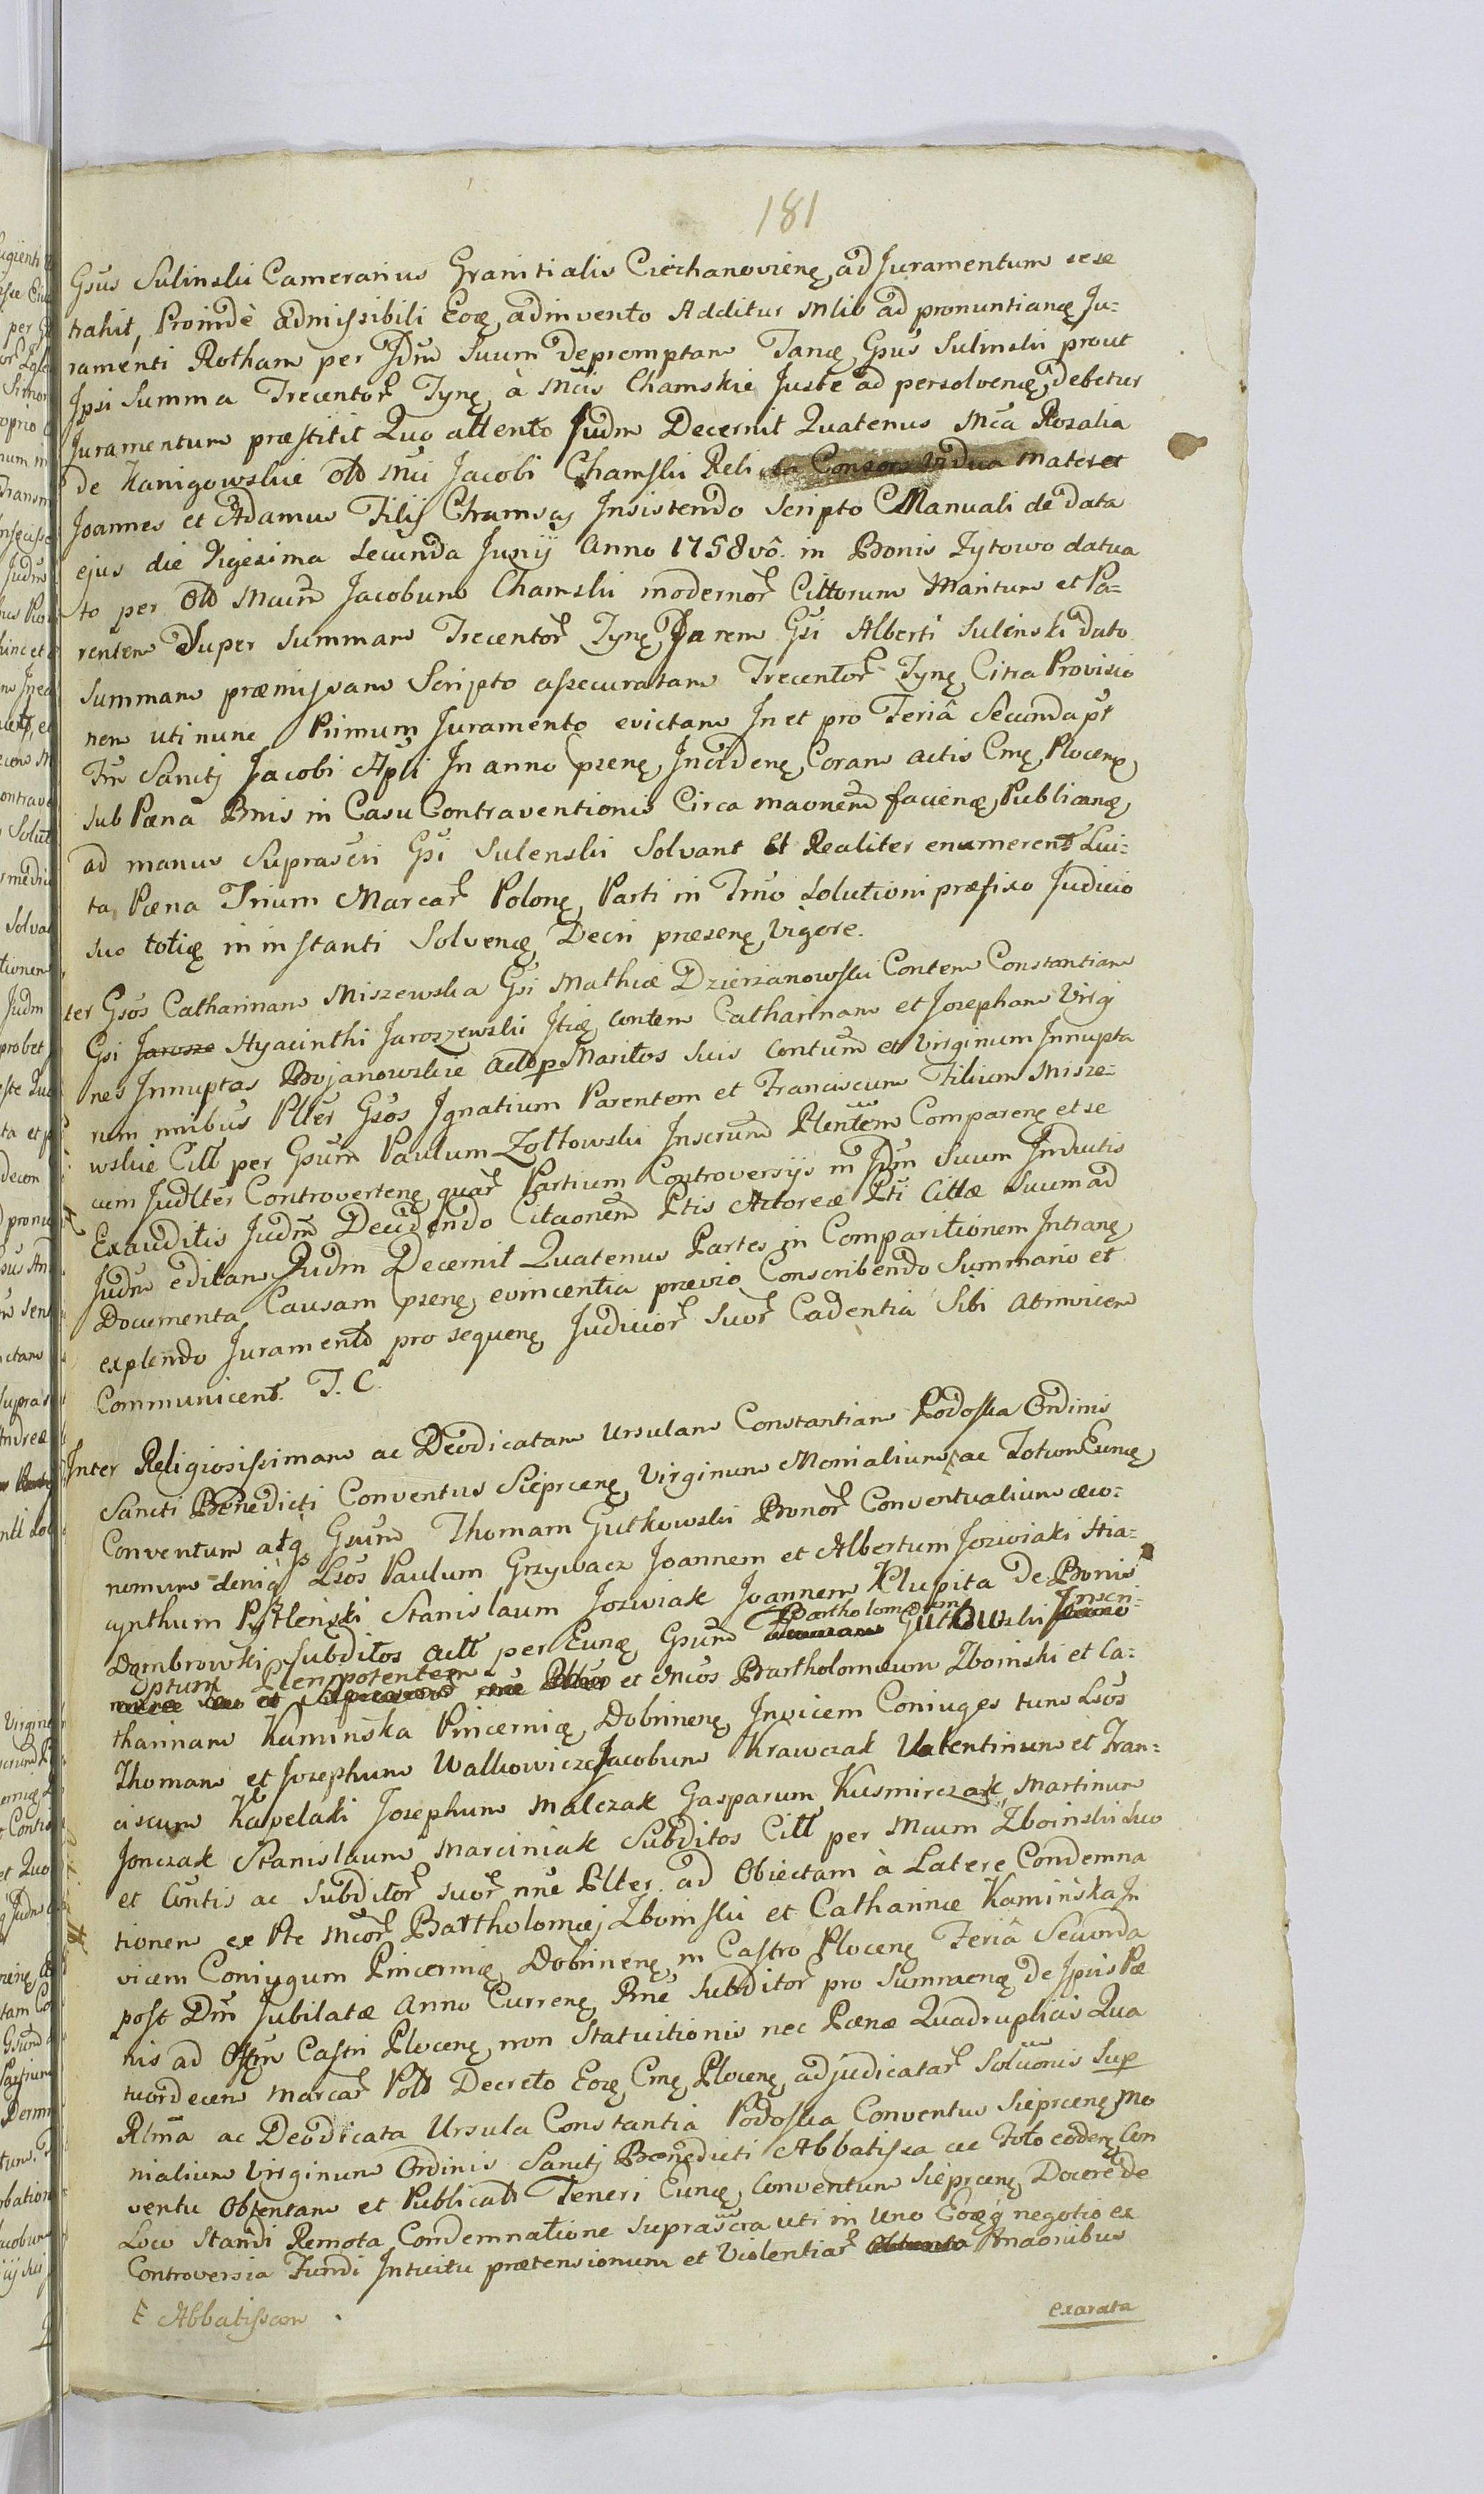 181
Gsus Sulinski Camerarius Granitialis Ciechanovienę, ad Juramentum sese
trahit, Proindè admissibili Eoę, adinvento Additur Mlis ad pronuntianę Ju-
ramenti Rotham per Jdm Suum depromptam Tanę, Gsus Sulinski prout
Ipsi Summa Trecentor Tynę, à Mcis Chamskie Juste ad persolvenę, debetur
Juramentum præstitit Quo attento Judm Decernit Quatenus Mca Rozalia
de Kanigowskie Olb Mci Jacobi Chamski Reli ta Consors Vidua Mater et
Joannes et Adamus Filij Chamscy Insistendo Scripto Manuali de data
ejus die Vigesima Secunda Junij Anno 1758vo. in Bonis Zytowo datua
to per Olb Mcum Jacobum Chamski modernor Cittorum Maritum et Pa-
rentem Super Summam Trecentor Tynę, Parem Gsi Alberti Sulenski dato
Summam præmissam Scripto assecuratam Trecentor Tynę, Citra Provisio
nem uti nunc Primum Juramento evictam In et pro Feriâ Secunda pst
Ftu Sancti Jacobi Apli In anno psenę, Incidenę, Coram actis Cmę, Plocenę,
sub Pæna Bnis in Casu Contraventionis Circa maonem facienę, Publicanę,
ad manus Suprascri Gsi Sulenski Solvant et Realiter enumerent Lui-
ta, Pæna Trium Marcar Polonę, Parti in Trno Solutioni præfixo Judicio
suo totię in instanti Solvenę, Decri præsenę, Vigore.
ter Gsos Catharinam Miszewska Gsi Mathiæ Dzierzanowski Contem Constantiam
Gsi Jarosze Hyacinthi Jaroszewski Itię, contem Catharinam et Josepham Virgi
nes Innuptas Bojanowskie act p Maritos Suis Contum et Virginum Innupta
rum nnibus Plter Gsos Ignatium Parentem et Franciscum Filium Misze-
wskie Citt per Gsum Paulum Zołtowski Inscrum Plentem Comparenę et se
cum Judlter Controvertenę, quar Partium Controversijs in Jdm Suum Inductis
Exauditis Judm Decidendo Citaonem Ptis Actoreæ Pti Cittæ Suum ad
Judm editam Judm Decernit Quatenus Partes in Comparitionem Intranę,
Documenta Causam psenę, evincentia prævio Conscribendo Summario et
explendo Juramento pro sequenę, Judicior Suor Cadentia Sibi abinvicem
Communicent. T. C.
Inter Religiosissimam ac Deodicatam Ursulam Constantiam Podoska Ordinis
Sancti Benedicti Conventus Sieprcenę, Virginum Monialium ac Totum Eunę,
Conventum atq Gsum Thomam Gutkowski Bonor Conventualium œco-
nomum deniq Lsos Paulum Grzywacz Joannem et Albertum Jozwiaki Hia-
cynthum Pstleński Stanislaum Jozwiak Joannem Klupita De Bonis
Dąmbrowki Subditos act per Eunę, Gsum Bartholomæum Gutkowski Inscri-
ptum Plenipotentem et Mcos Bartholomæum Zboinski et Ca-
tharinam Kaminska Pincernię, Dobrinenę, Invicem Coniuges tum Lsos
Thomam et Josephum Walkowicze Jacobum Krawczak Valentinum et Fran-
ciscum Kapelaki Josephum Malczak Gasparum Kusmirczak Martinum
Jonczak Stanislaum Marciniak Subditos Citt per Mcum Zboinski Suo
et Contis ac Subditor suor nne Plter. ad Obiectam à Latere Condemna
tionem ex Pte Mcor Bartholomæj Zboinski et Catharinæ Kamińska In
vicem Coniugum Pincernię, Dobrinenę, in Castro Plocenę, Feriâ Secunda
post Dm Jubilatæ Anno Currenę, Rne Subditor pro Sumnenę, de Ipsis Pæ
nis ad Offm Castri Plocenę, non Statuitionis nec Pœnæ Quadruplicis Qua
tuordecem Marcar Pold Decreto Eoę, Cmę, Plocenę, adjudicatar Soluonis Sup
Rlma ac Deodicata Ursula Constantia Podoska Conventus Sieprcenę, Mo
nialium Virginum Ordinis Sancti Benedicti Abbatissa ac Toto eodem Con
ventu Obtentam et Publicat Teneri Eunę, Conventum Sieprcenę, Docere de
Loco Standi Remota Condemnatione Suprascra uti in Uno Eoęq negotio ex
Controversia Fundi Intuitu prætensionum et Violentiar Amaonibus
Abbatissam
exarata